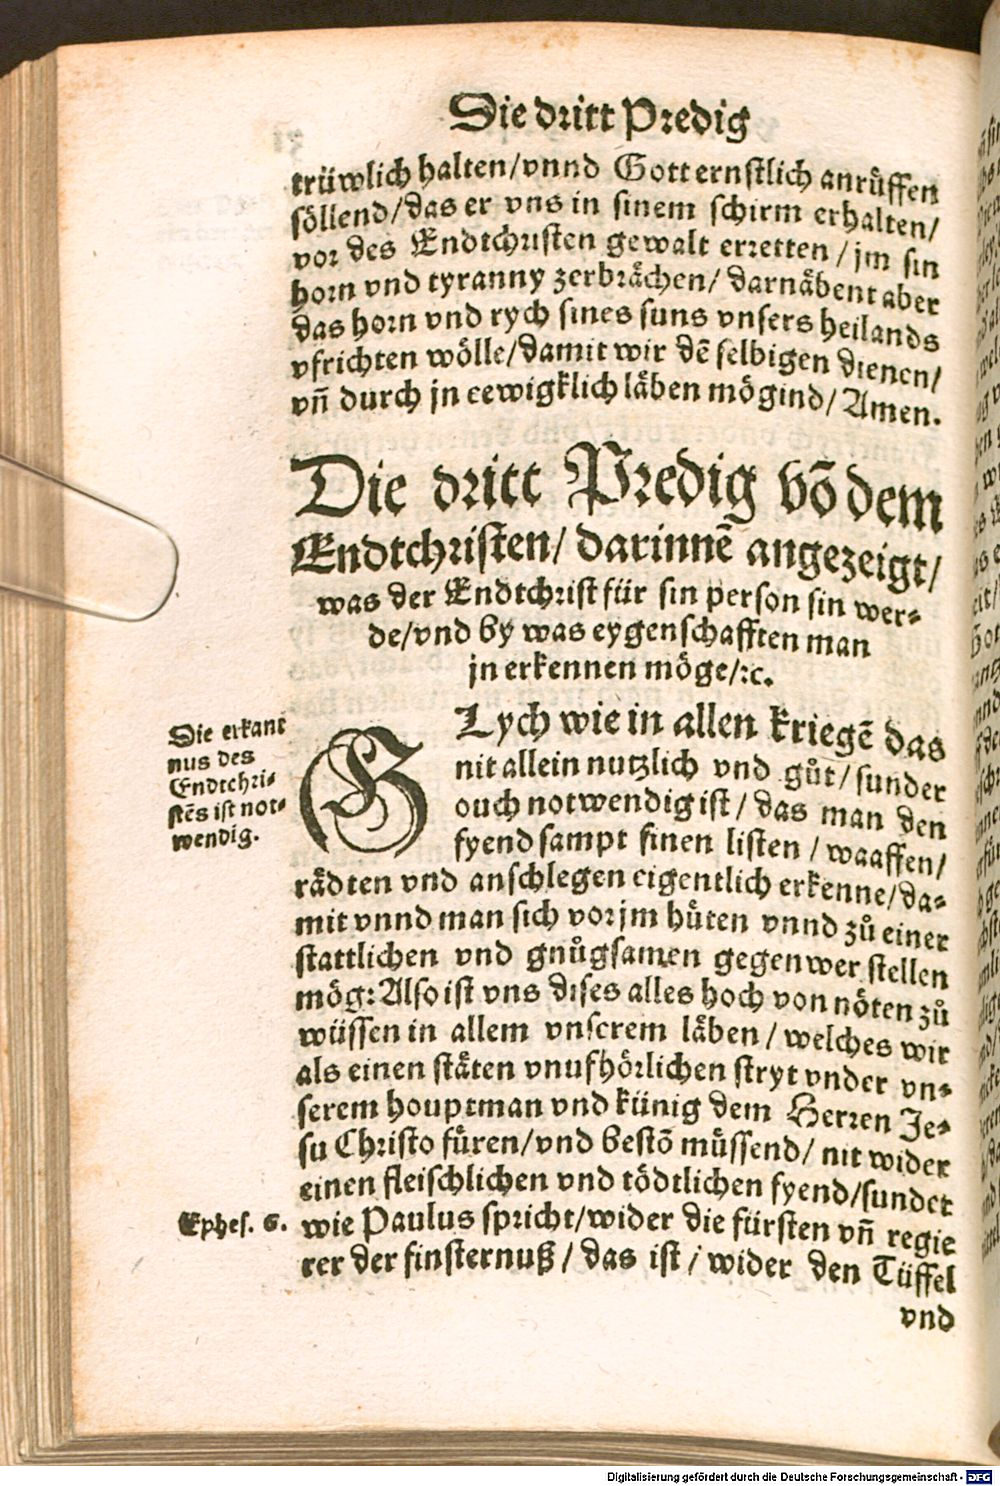 Die dritt Predig
trüwlich halten/vnnd Gott ernstlich anrůffen
söllend/das er vns in sinem schirm erhalten/
vor des Endtchristen gewalt erretten/jm sin
horn vnd tyranny zerbrächen/darnäbent aber
das horn vnd rych sines suns vnsers heilands
vfrichten wölle/damit wir dē selbigen dienen/
vñ durch jn eewigklich läben mögind/Amen.
Die dritt Predig võ dem
Endtchristen/darinnē angezeigt/
was der Endtchrist für sin person sin wer-
de/vnd by was eygenschafften man
jn erkennen möge/ꝛc.
GLych wie in allen kriegē das
nit allein nutzlich vnd gůt/sunder
ouch notwendig ist/das man den
fyend sampt sinen listen/waaffen/
rädten vnd anschlegen eigentlich erkenne/da-
mit vnnd man sich vor jm hüten vnnd zů einer
stattlichen vnd gnůgsamen gegenwer stellen
mög: Also ist vns dises alles hoch von nöten zů
wüssen in allem vnserem läben/welches wir
als einen stäten vnufhörlichen stryt vnder vn-
serem houptman vnd künig dem Herren Je-
su Christo füren/vnd bestõ müssend/nit wider
einen fleischlichen vnd tödtlichen fyend/sunder
wie Paulus spricht/wider die fürsten vñ regie
rer der finsternuß/das ist/wider den Tüffel
vnd
Die erkant
nus des
Endtchri-
stēs ist not-
wendig.
Ephes. 6.
Digitalisierung gefördert durch die Deutsche Forschungsgemeinschaft - DFG